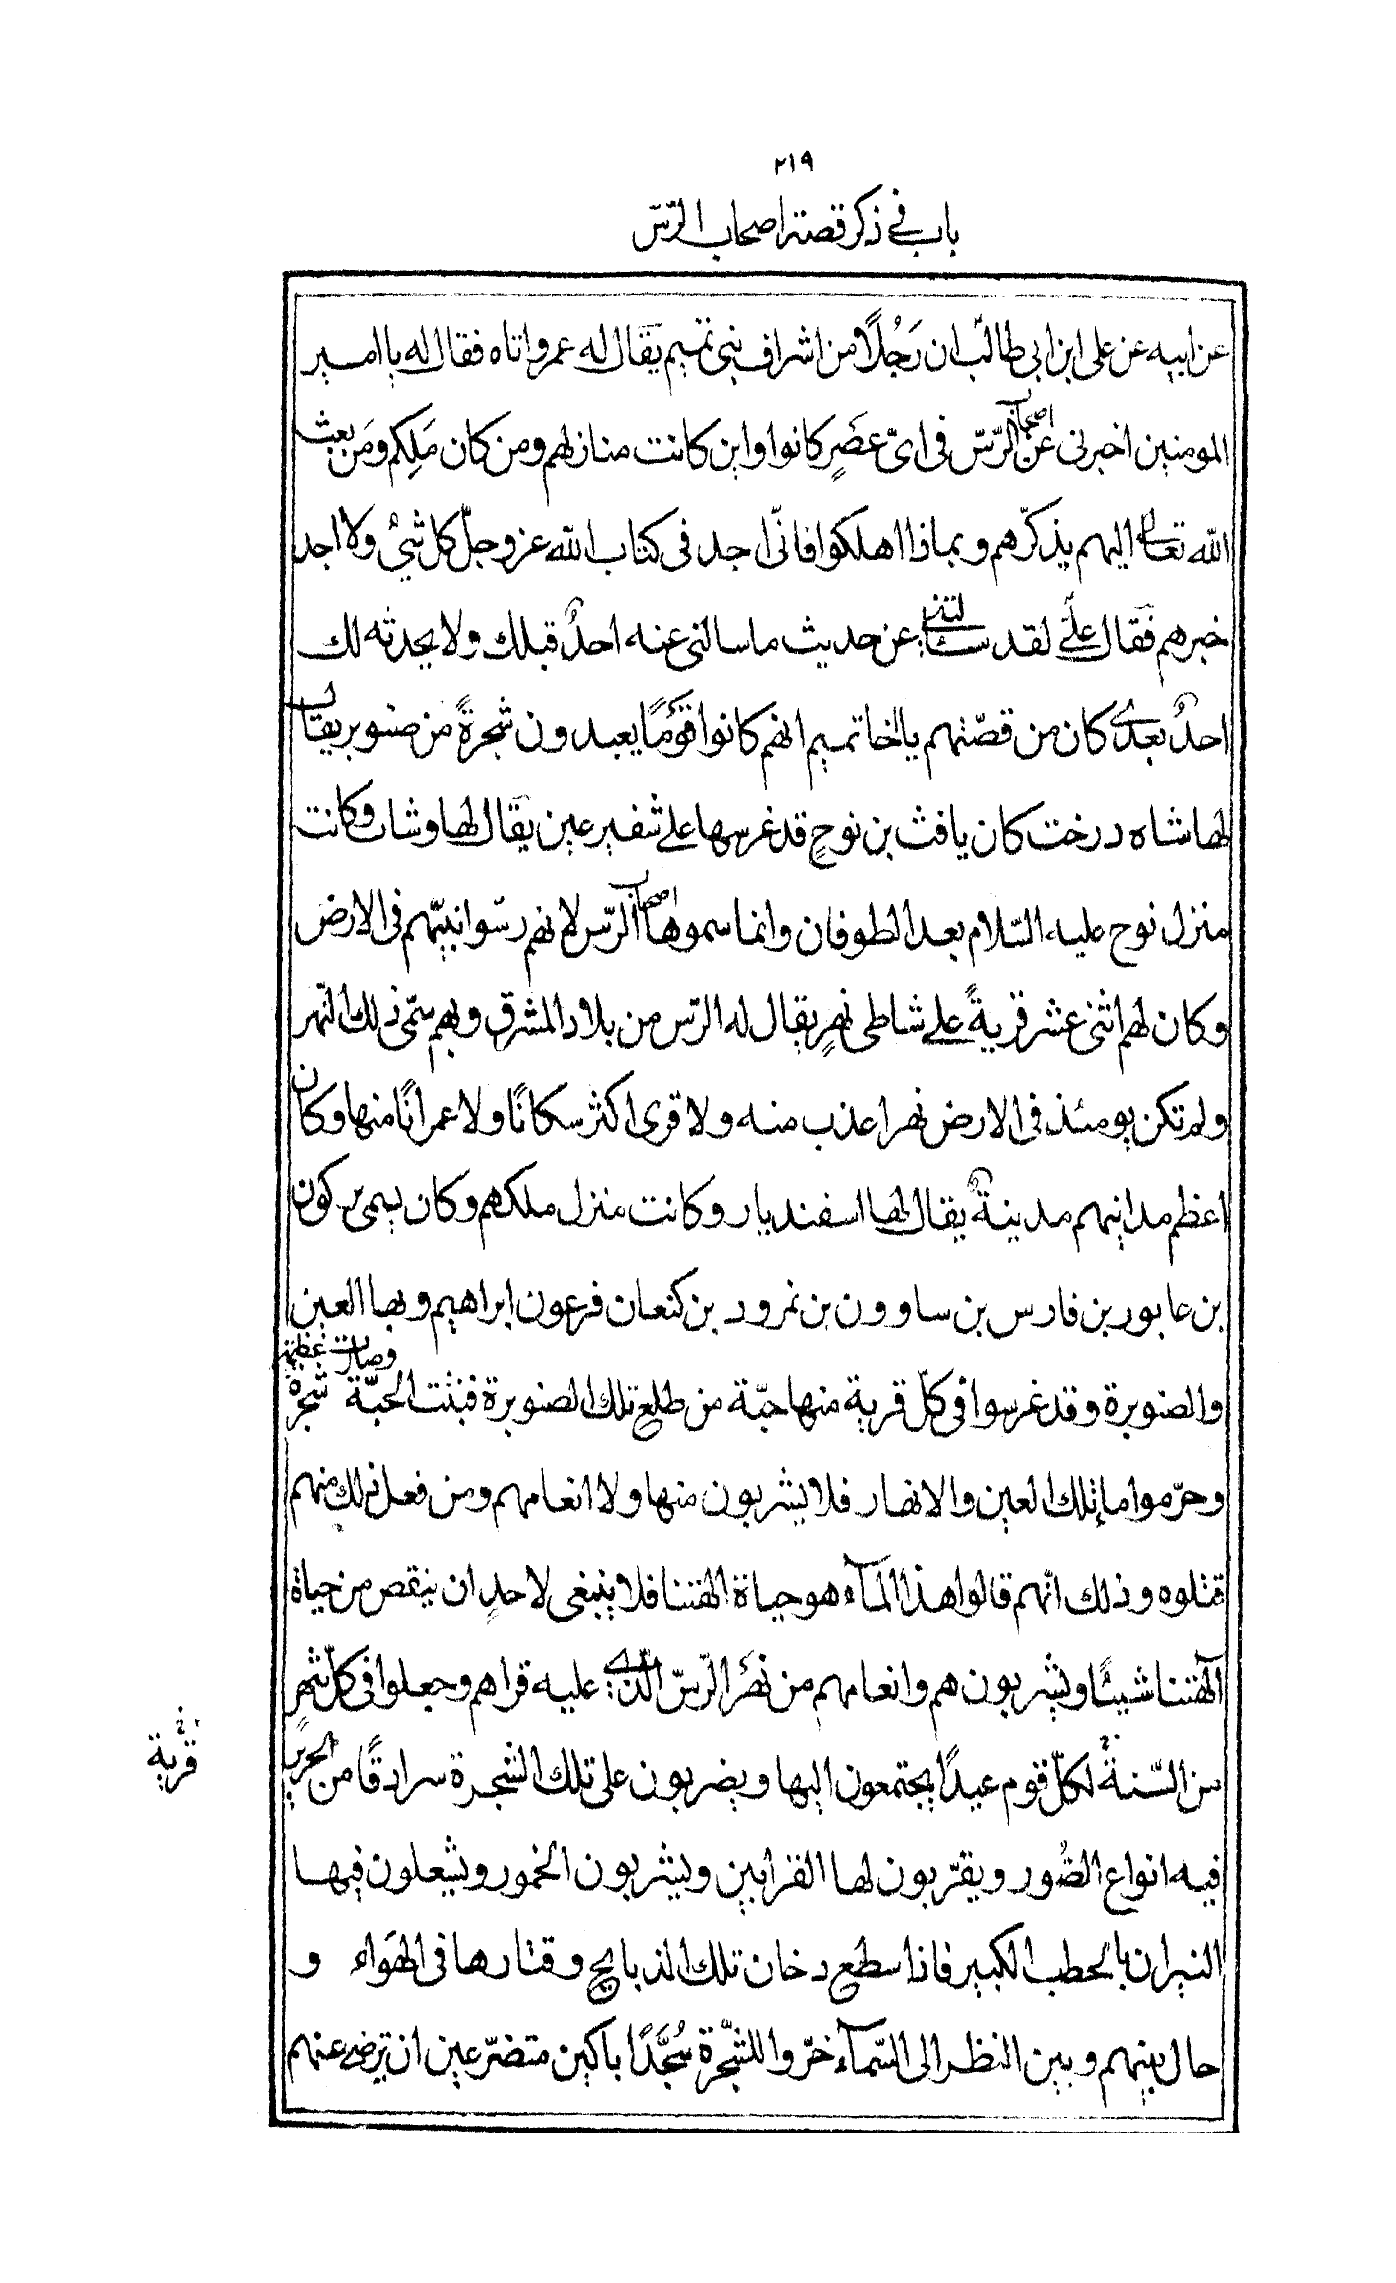 ٢١٩
باب في ذكر قصة اصحاب الرّسّ
عن ابيه عن علی ابن ابی طالب ان رَجُلًا من اشراف بنی تمیم يقال له عمرو اتاه فقال له يا امير
المومنين اخبرنی عن اصحاب الرّسّ فی ایّ عصَرٍ كانوا واين كانت منازلهم ومن كان مَلِكهم ومَن بعث
الله تعالى اليهم يذكّرهم وبماذا اهلكوا فانّی اجد فی كتاب الله عز وجلّ كل شیُ ولا اجد
خبرهم فقال علیّ لقد سئلتنے عن حديث ما سالنی عنه احدٌ قبلك ولا يحدثه لك
احدٌ بعدے كان من قصّتهم يا اخا تميم انهم كانوا قَومًا يعبدون شجرةً من صنوبر يقال
لها شاه درخت كان يافث بن نوحٍ قد غرسها علے شفير عين يقال لها وشاب وكانت
منزل نوح عليه السّلام بعد الطوفان وانما سموها اصحاب الرّس لانهم رسّوا نبيّهم فی الارض
وكان لهم اثنی عشر قريةً علے شاطی نهرٍ يقال له الرّس من بلاد المشرق وبهم سمّی ذلك النّهر
ولم تكن يومئذ فی الارض نهر اعذب منه ولا قری اكثر سكانًا ولا عمرانًا منها وكان
اعظم مداينهم مدينةٌ يقال لها اسفنديار وكانت منزل ملكهم وكان يسمی بركون
بن عابور بن فارس بن ساوون بن نمرود بن كنعان فرعون ابراهيم وبها العين
والصنوبرة وقد غرسوا فی كلّ قرية منها حبّة من طلع تلك الصنوبرة فنبتت الحبّة وصارت شجرة عظيمة
وحرّموا ماء تلك العين والانهار فلا يشربون منها ولا انعامهم ومن فعل ذلك منهم
قتلوه وذلك انّهم قالوا هذا المآء هو حياة الهتنا فلا ينبغی لاحدٍ ان ينقص من حياة
آلهتنا شيئًا ويشربون هم وانعامهم من نهَر الرّسّ الّذے عليه قراهم وجعلوا فی كلّ شهر
من السّنة لكلّ قوم عيدًا يجتمعون اليها ويضربون علی تلك الشجرة سرادقًا من الحرير
قرية
فيه انواع الصُّور ويقرّبون لها القرابين ويشربون الخمور ويشعلون فيها
النيران بالحطب الكبير فاذا سطع دخان تلك الذبايح وقتارها فی الهَواء و
حال بينهم وبين النظر الی السّمآء خرّوا للشّجرة سُجَّدًا باكين متضرّعين ان ترضی عنهم